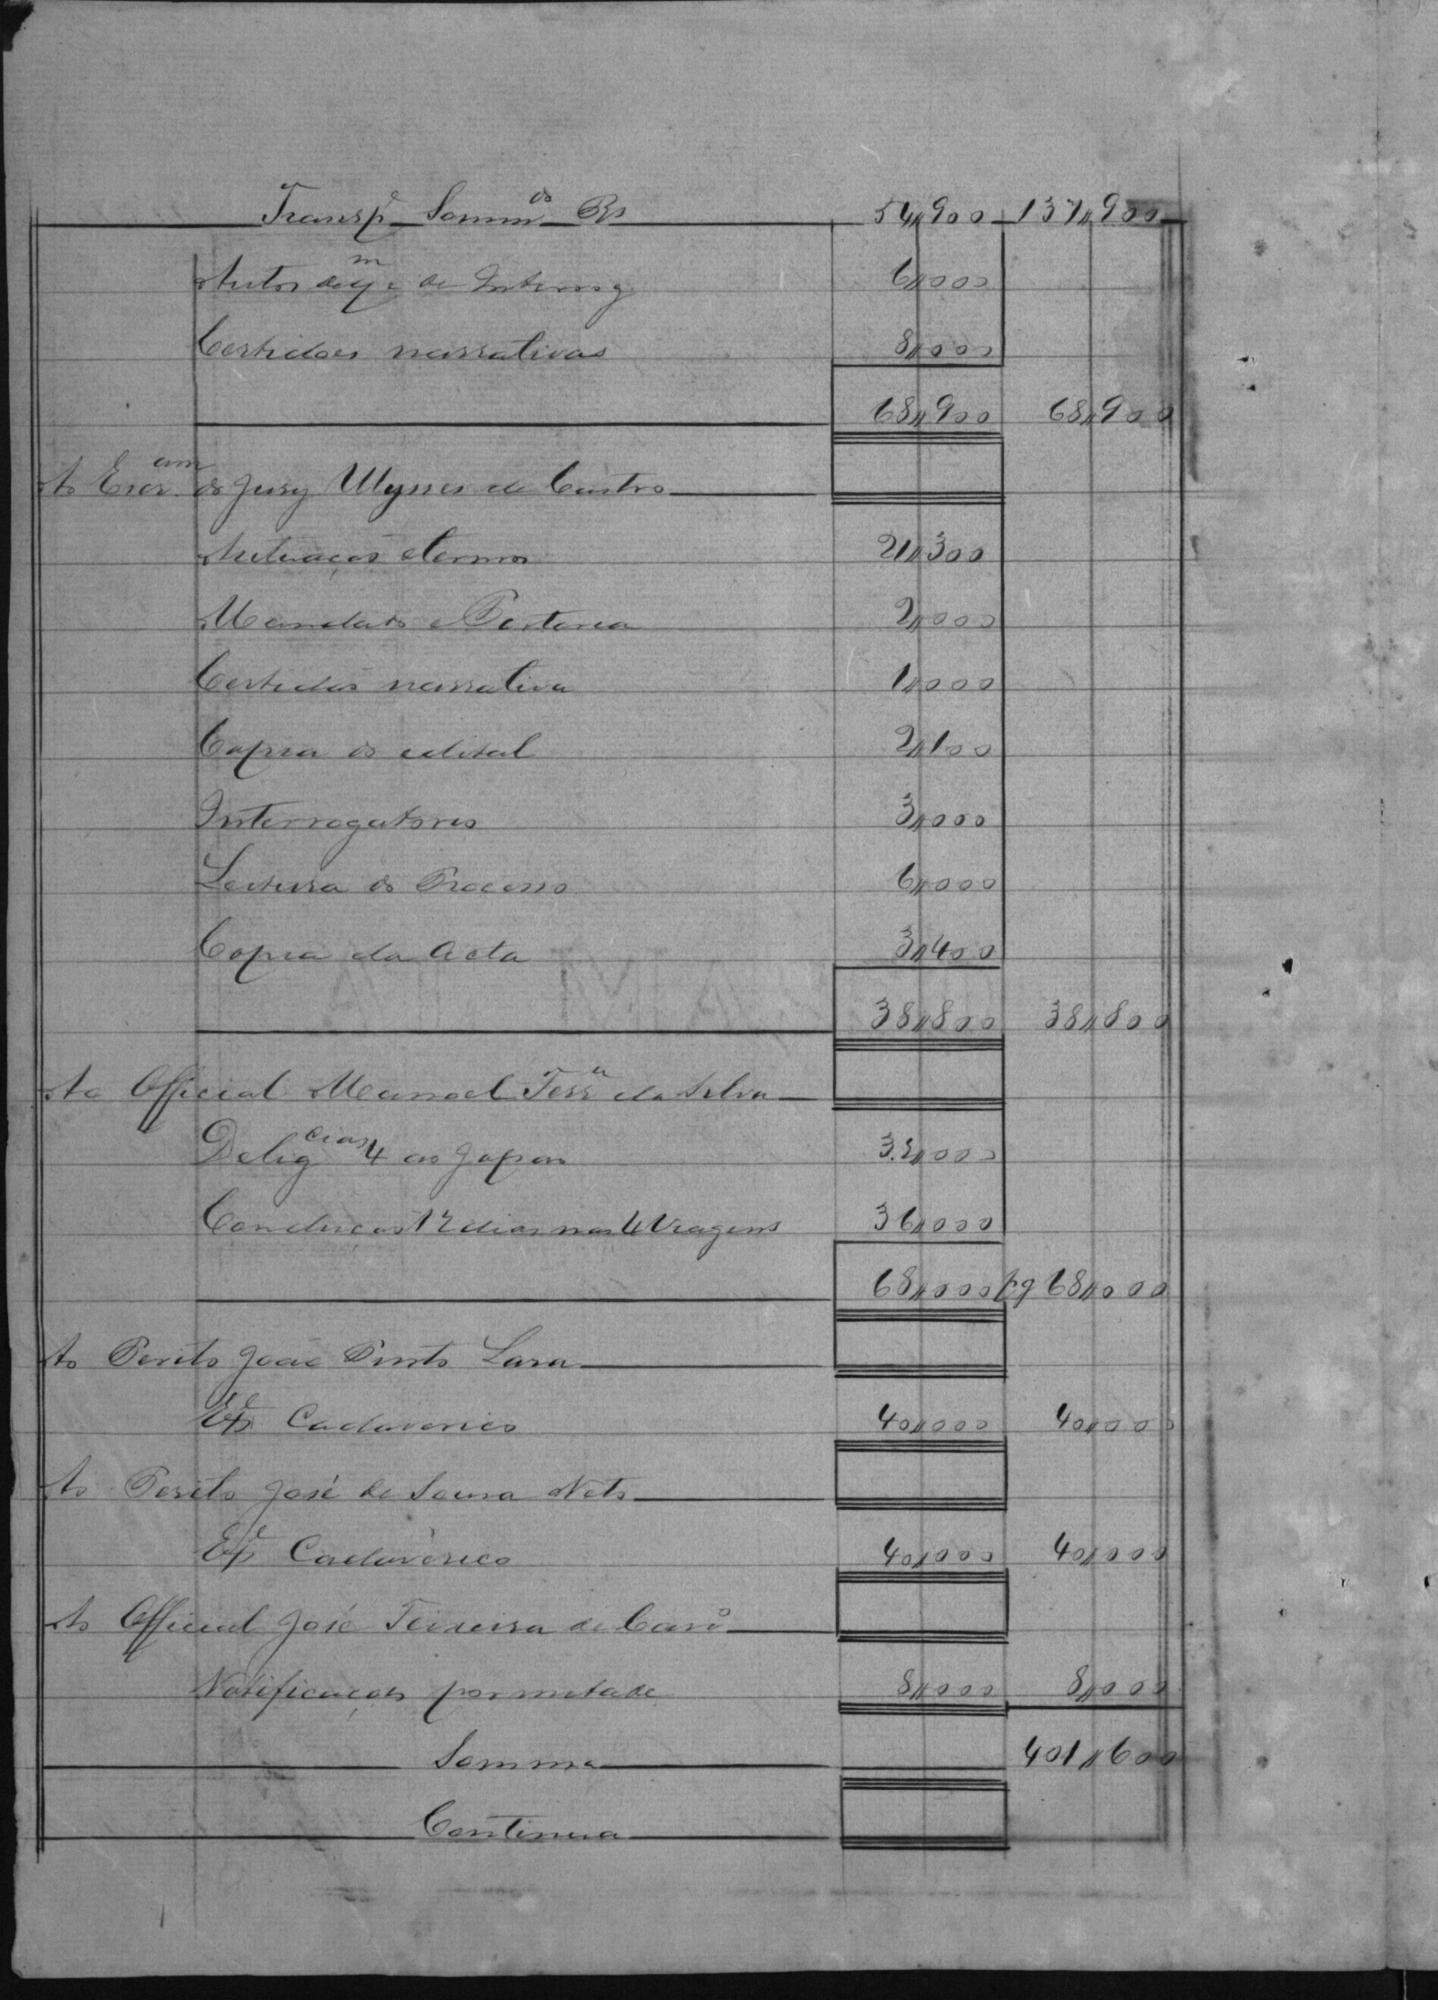 Transp.e Somm.as Rs 54,,900 137,,900
Autos de q.m e de Interrog 6,,000
Certidões narrativas 8,,000
68,,900 68,,900
Ao Escr.am do Jury Ulysses de Castro
Autuação e termos 21,,300
Mandado e Portaria 2,,000
Certidão narrativa 1,,000
Copia do edital 2,,100
Interrogatorio 3,,000
Leitura do Processo 6,,000
Copia da Acta 3,,400
38,,800 38,,800
Ao Official Manoel Ferr.a da Silva
Delig.cias 4 ao Japão 32,,000
Conducção 12 dias nas 4 Viagens 36,,000
68,,000 pg 68,,000
Ao Perito João Pinto Lara
Cadaverico 40,,000 40,,000
Ao Perito José de Sousa Neto
Cadaverico 40,,000 40,,000
Ao Official José Teixeira de Carv.o
Notificações por metade 8,,000 8,,000
Somma 401,,600
Continua